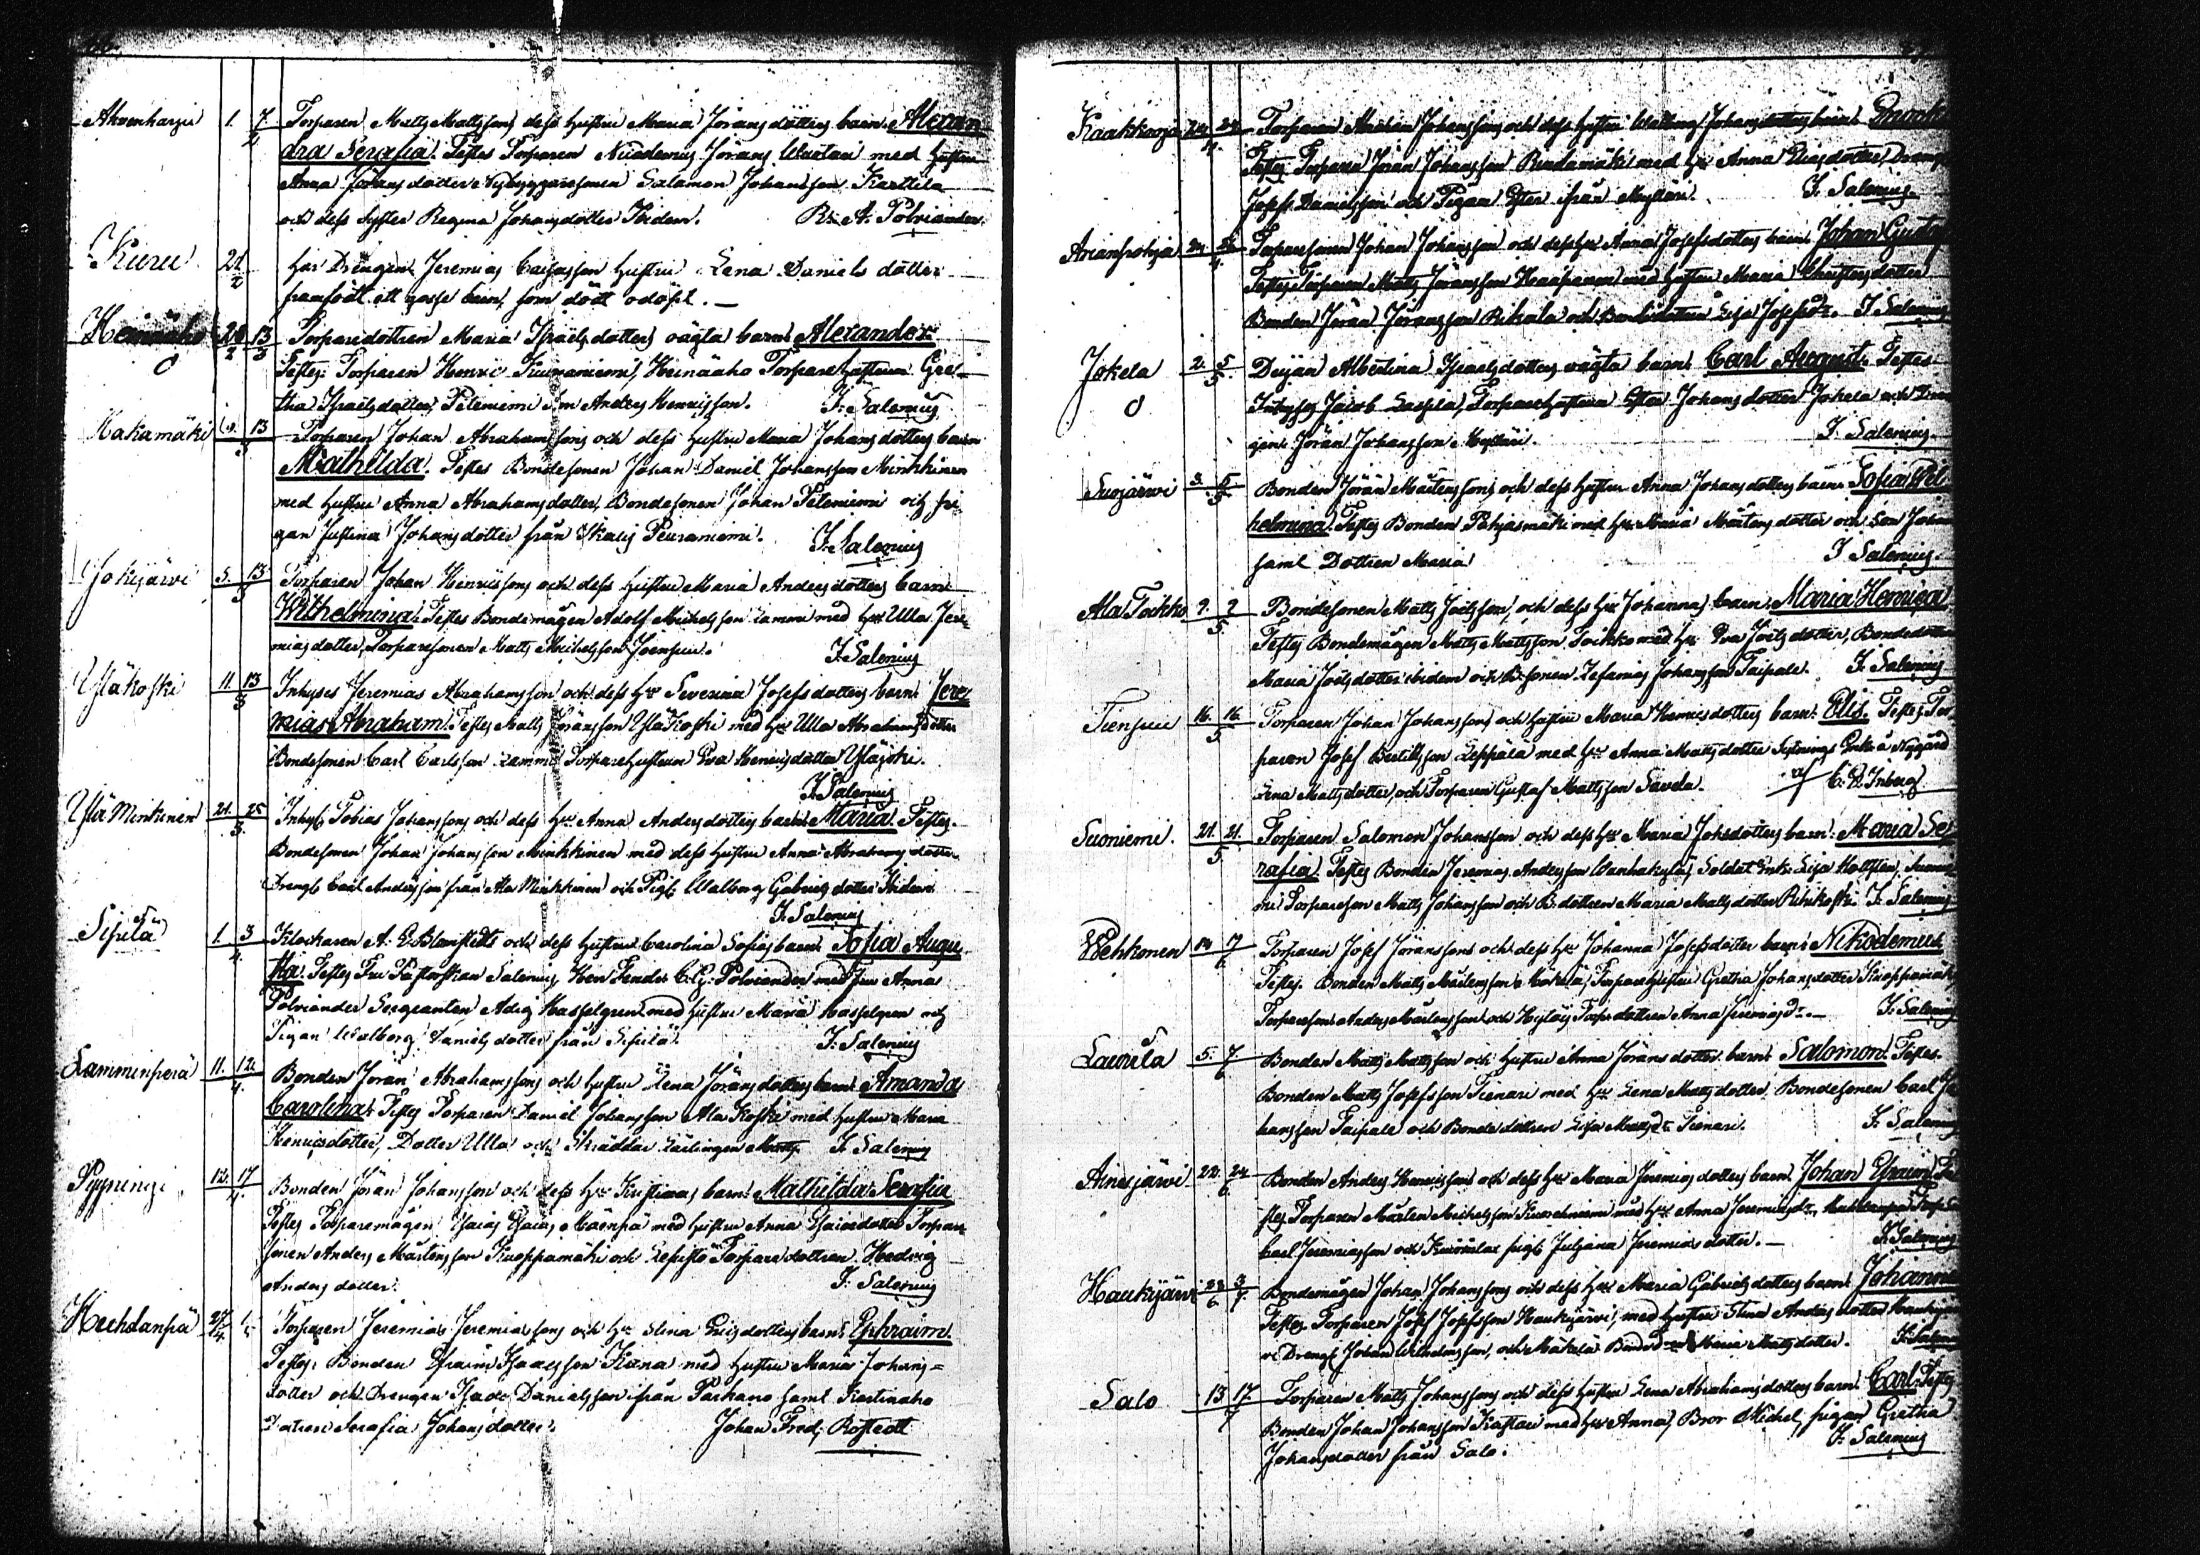 Ahvenharju 1. 7/2 Torparen Matts Mattssons dess hustru Maria Jöransdotters barn: Alexan
dra Serafia. Testes Torparen Nicodemus Jörans med hustru
Anna Johansdotter Nybyggaresonen Salomon Johansson Karttila
och dess Syster Regina Johansdotter Ibidem. A. Polviander
Kuru 21/2 har Drengen Jeremias hustru Lena Danielsdotter
framfödt ett gosse barn, som dödt odöpt. —
Heinäaho 28/2 13/3 Torparedottren Maria Israelsdotters oägta barn: Alexander.
Testes: Torparen Henric Kiuvaniemi, Heinäaho Torpare hustrun Gre-
tha Israelsdotter, Peltniemi Son Anders Henricsson. I. Salenius
Hakamäki 13/3 Torparen Johan Abrahamssons och dess hustru Maria Johansdotters barn
Mathilda. Testes Bondesonen Johan Daniel Johansson Minkkinen
med hustru Anna Abrahamsdotter, Bondesonen Johan Peltniemi och pi-
gan Justina Johansdotter från Ikalis Peuraniemi. I. Salenius
Jokijärvi 5. 13/3 Torparen Johan Henricssons och dess hustru Maria Andersdotters barn
Wilhelmina. Testes Bondemågen Adolf Michelsson Lammi med hru Ulla Jere-
miasdotter, Torparesonen Matts Michelsson Joensuu. I. Salenius
Yläkoski 11. 13/3 Inhyses Jeremias Abrahamsson och dess hru Severina Josefsdotters barn: Jere
mias Abraham. Testes Matts Jöransson Yläkoski med hru Ulla Abrahamsdotter
Bondesonen Carl Carlsson Lammi Torpare hustrun Eva Henricsdotter Yläjoki.
I. Salenius
Ylä Minkinen 21. 25/3 Inhys Tobias Johanssons och dess hru Anna Andersdotters barn: Maria. Testes.
Bondesonen Johan Johansson Minkkinen med dess hustru Anna Abrahamsdotter
Drengs Carl Andersson från Ala Minkkinen och Pigs Walborg Gabrielsdotter Ibidem
I. Salenius
Sipilä 1. 3/4 Klockaren A. E. Blomstedts och dess hustru Carolina Sofias barn: Sofia Augu
sta. Testes Fru Pastorskan Salenius Herr Lender C. G. Polviander med Fru Anna
Polviander Sergeanten Adig Hasselgren med hustru Maria Hasselgren och
Pigan Walborg Danielsdotter från Sipilä. I. Salenius
Lamminperä 11. 12/4 Bonden Jöran Abrahamssons och hustru Lena Jöransdotters barn: Amanda
Carolina. Testes Torparen Daniel Johansson Ala Koski med hustru Maria
Henricsdotter, Dotter Ulla och Skräddar Lärlingen Matts. I. Salenius
Pyynengi 12. 17/4 Bonden Jöran Johansson och dess hru Kristinas barn: Mathilda Serafia
Testes Torparemågen Esaias Esaias Mäenpä med hustru Anna Esaiædotter Torpare
sonen Anders Mårtensson Kuoppamäki och Lepistö Torparedottren Hedvig
Andersdotter. I. Salenius
Huhdanpä 27/4 1/5 Torparen Jeremias Jeremiassons och hru Stina barn: Ephraim.
Testes: Bonden Efraim Isaacsson Kana med hustru Maria Johans=
dotter och Drengen Isac Danielsson ifrån Parkano samt Kortinaho
Dottren Serafia Johansdotter. Johan Fred. Rostedt
Kaakkuoja 24. 24/4 Torparen Johanssons och dess hustru Walborg Johansdotters barn: Enock
Testes: Torparen Jöran Johansson med hru Anna Eliædotter, Dreng
Josef Danielsson och Pigan Ester ifrån Mylläri. I. Salenius
Torparesonen Johan Johansson och dess hru Anna Josefsdotters barn: Johan Gustaf
Testes: Torparen Matts Jöransson Haapanen med hustru Maria Christersdotter
Bonden Jöran Jöransson Rihala och Bondedottren Lisa Josefsdr. I. Salenius
Jokela 2. 5/5 Deijan Albertina Israelsdotters oägta barn: Carl August. Testes
Inhyses Jacob Torpare hustrun Ester Johansdotter Jokela och Dren
gen Jöran Johansson Mylläri. I. Salenius
Suojärvi 3. 5/5 Bonden Jöran Mårtenssons och dess hustru Anna Johansdotters barn: Sofia Wil
helmina. Testes Bonden Pohjasmäki med hru Maria Mårtensdotter och Son Johan
samt Dottren Maria I. Salenius
Ala Toikko 9. 9/5 Bondesonen Matts Joelsson, och dess hru Johannas barn: Maria Hervica
Testes Bondemågen Matts Mattsson Toikko med hru Eva Joelsdotter, Bondedottren
Maria Joelsdotter ibidem och B:sonen Zefanias Johansson Taipale. I. Salenius
Tiensuu 16. 16/5 Torparen Johan Johanssons och hustru Maria Henricsdotters barn: Elis. Testes Tor
paren Josef Bertilsson Leppälä med hru Anna Mattsdotter Enka Nygård
Lena Mattsdotter, och Torparen Gustaf Mattsson Savela. af C. R. Inberg
Suoniemi. 21. 21/5 Torparen Salomon Johansson och dess hru Maria Johsdotters barn: Maria Se
rafia. Testes Bonden Jeremias Andersson Wanhakylä, Soldat Enk: Lisa Hollsten, Suonie
mi Torpareson Matts Johansson och B:dottren Maria Mattsdotter Rihikoski. I. Salenius
Wehkonen 14. 17/6 Torparen Josef Jöranssons och dess hru Johanna Josefsdotter barn: Nikodemus
Testes. Bonden Matts Mårtensson Mäkelä, Torpare hustru Gretha Johansdotter Kuoppamäki
Torpareson Anders Mårtensson och Hylöis Torp:dottren Anna Jeremiasdr. — I. Salenius
Laurila 5. 7/6 Bonden Matts Mattsson och hustru Anna Jöransdotter. barn: Salomon. Testes.
Bonden Matts Josefsson Tienari med hru Lena Mattsdotter. Bondesonen Carl Jo
hansson Taipale och Bondedottren Lisa Mattsdr Tienari. I. Salenius
Ainesjärvi 22. 24/6 Bonden Anders Henricssons och dess hru Maria Jeremiasdotters barn: Johan Efraim Te
stes. Torparen Mårten Michelsson med hru Anna Jeremiædr,
Carl Jeremiasson och pigs Juliana Jeremiædotter. — I. Salenius
Haukijärvi 28/6 3/7 Bondemågen Johan Johanssons och dess hru Maria Gabrielsdotters barn: Johanna
Testes. Torparen Josef Josefsson Haukijärvi, med hustru Stina Andersdotter Haukijärvi
Drengs Johan Wilhelmsson, och Mäkelä Maria Mattsdotter. I. Salenius
Salo 13. 17/7 Torparen Matts Johanssons och dess hustru Lena Abrahamsdotters barn: Carl. Testes
Bonden Johan Johansson med hru Anna, Bror Michel, pigan Gretha
Johansdotter från Salo. I. Salenius